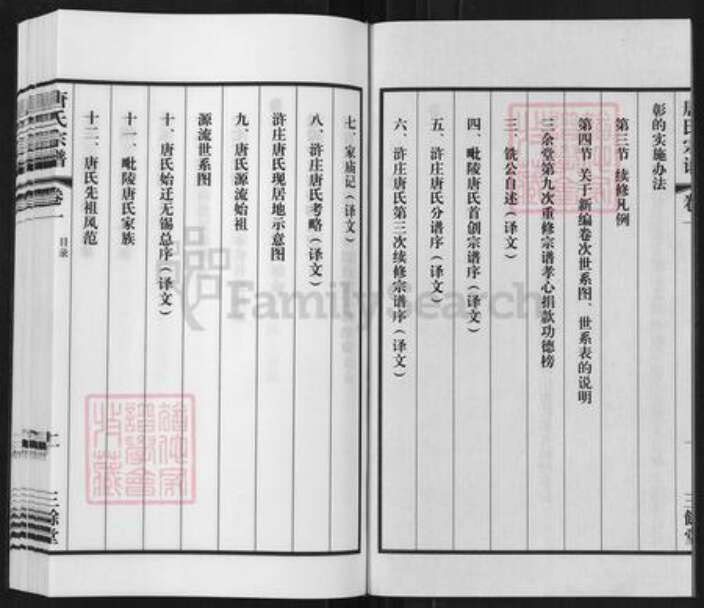 唐氏宗谱 卷一
彰的实施办法
第三节 续修凡例
第四节 关于新编卷次世系图、世系表的说明
三余堂第九次重修宗谱孝心捐款功德榜
三、铣公自述（译文）
四、毗陵唐氏首创宗谱序（译文）
五、浒庄唐氏分谱序（译文）
六、浒庄唐氏第三次续修宗谱序（译文）
三餘堂
七、家庙记（译文）
八、浒庄唐氏考略（译文）
浒庄唐氏现居地示意图
九、唐氏源流始祖
源流世系图
十、唐氏始迁无锡总序（译文）
十一、毗陵唐氏家族
十二、唐氏先祖风范
唐氏宗谱 卷一 目录
三餘堂
FamilySearch